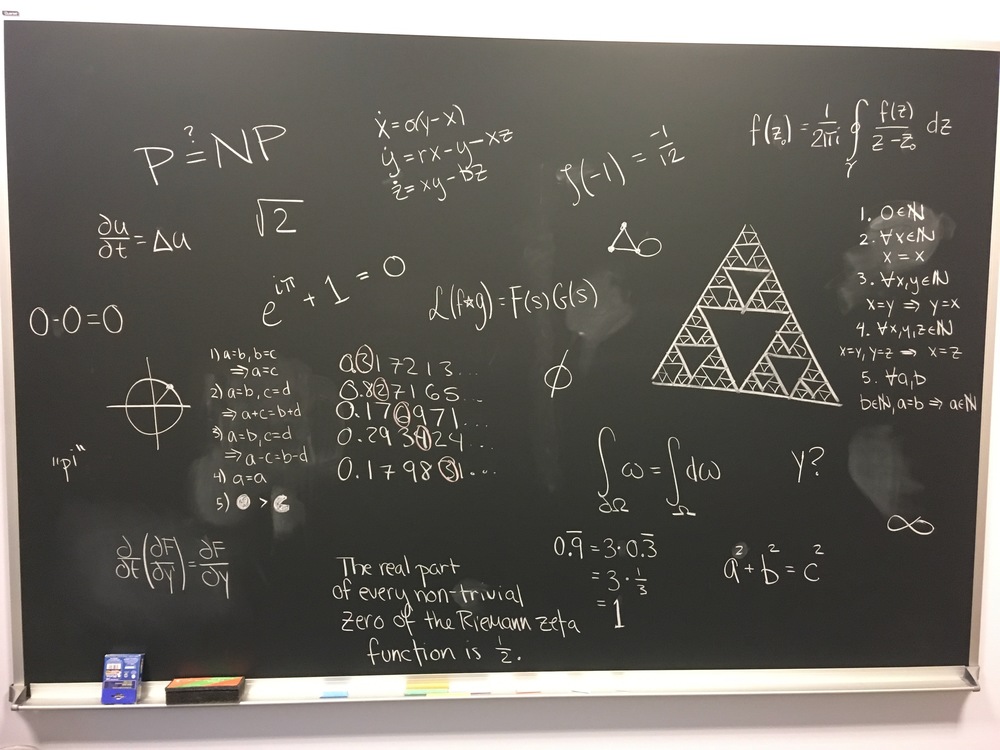 P ≟ NP
ẋ = σ(y - x)
ẏ = rx - y - xz
ż = xy - bz
ζ(-1) = -1/12
f(z₀) = 1/2πi ∮γ f(z)/z-z₀ dz
∂u/∂t = Δu
√2
1. 0∈ℕ
2. ∀x∈ℕ
x = x
3. ∀x,y∈ℕ
x=y ⇒ y=x
4. ∀x,y,z∈ℕ
x=y, y=z ⇒ x=z
5. ∀a,b
b∈ℕ, a=b ⇒ a∈ℕ
e^iπ + 1 = 0
ℒ(f*g) = F(s)G(s)
0-0=0
1) a=b, b=c
⇒ a=c
2) a=b, c=d
⇒ a+c=b+d
3) a=b, c=d
⇒ a-c=b-d
4) a=a
5) >
0.317213...
0.827165...
0.17 971...
0.293 24...
0.179831...
ϕ
"pi"
∫∂Ω ω = ∫Ω dω
Y?
∞
∂/∂t(∂F/∂y') = ∂F/∂y
The real part
of every non-trivial
zero of the Riemann zeta
function is 1/2.
0.9̅ = 3·0.3̅
= 3·1/3
= 1
a² + b² = c²